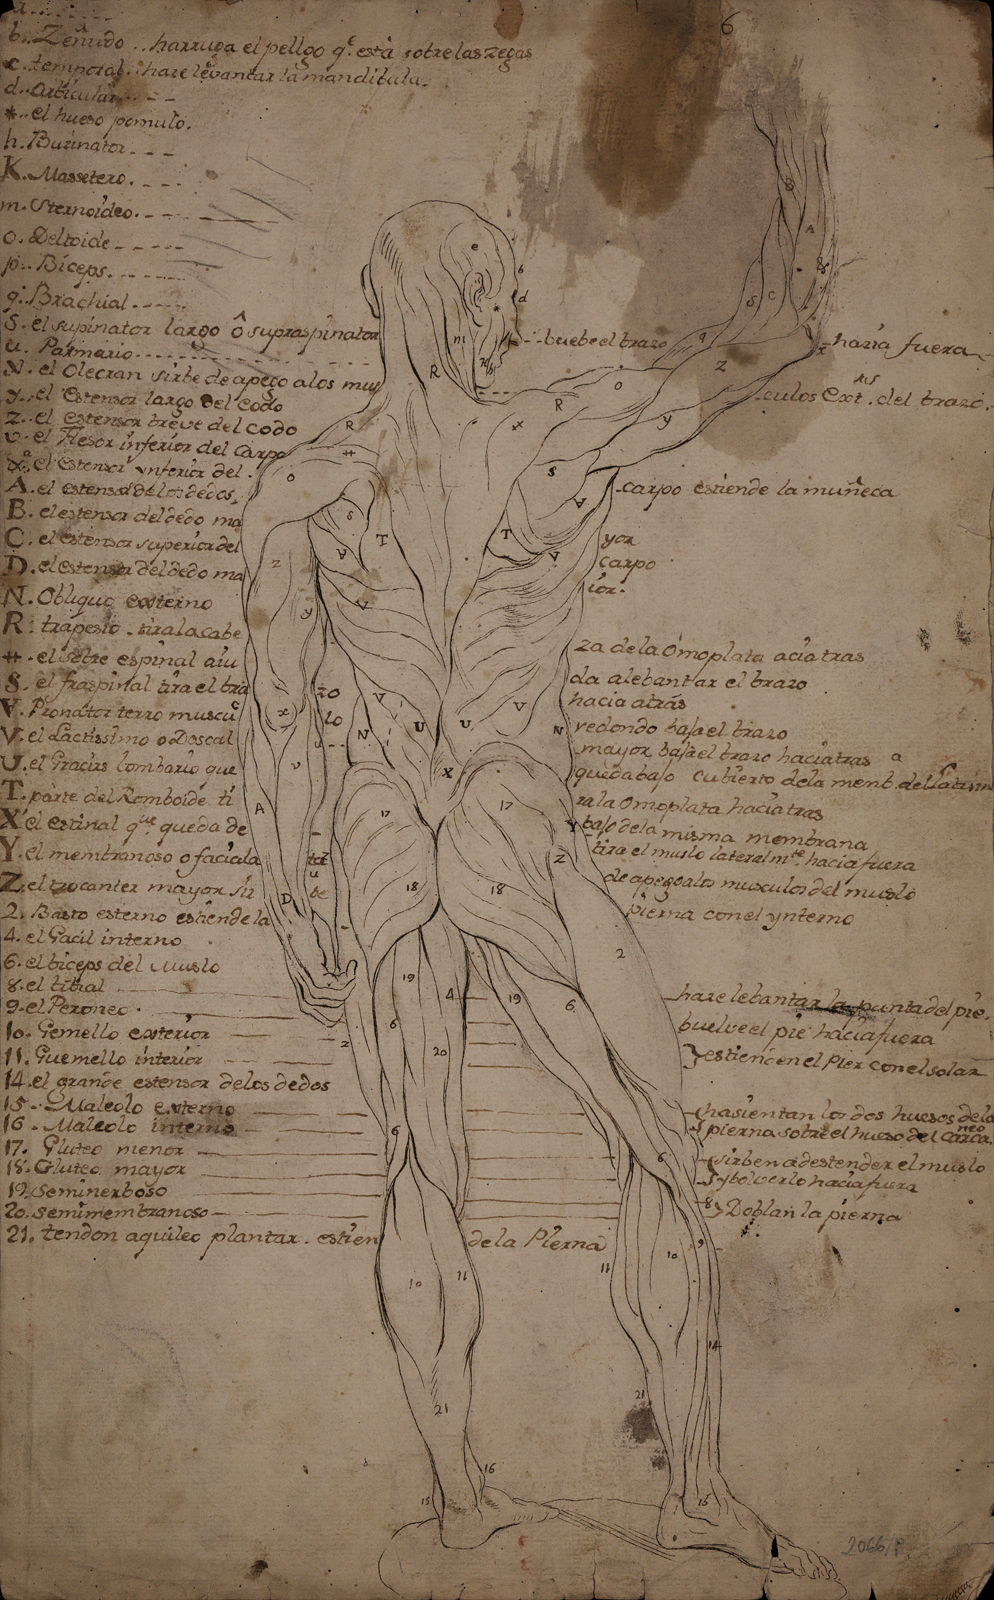 6
a...
b. Zeñudo .. harruga el pellgo q.e está sobre las zegas
c. temporal .. hare levantar la mandibula.
d. Articular
*. el hueso pomulo.
h. Buzinator
K. Massetero.
m. Sternoideo.
o. Deltoide
p. Biceps.
q. Brachial
S. el supinator largo ô supraspinator buebe el brazo hazia fuera
u. Palmario
X. el Olecran sirbe de apego a los musculos Ext.res del brazo.
y. el Estensor largo del Codo
z. el estensor breve del codo
v. el Flesor inferior del Carpo
el Estensor ynferior del carpo estiende la muñeca
A. el estensor de los dedos,
B. el estensor del dedo mayor
C. el estensor superior del carpo
D. el estensor del dedo ma
N. Obliquo externo
R. trapesio. tira la cabeza de la Omoplata acia tras
#. el sobre espinal aiuda alebantar el brazo
S. el fraspinal tira el brazo hacia atras
V. Pronator terro musculo redondo baja el brazo
V. el Lactissimo o Doscal mayor baja el brazo hacia tras
U. el Gracirs lombario que queda bajo cubierto de la memb. del Latisim
T. parte del Romboide tira la Omoplata hacia tras
X. el estinal q.ue queda debajo de la misma membrana
Y. el membranoso o faciala tira el muslo lateralm.te hacia fuera
Z. el trocanter mayor sirbe de apego a los musculos del muslo
2. Basto esterno estiende la pierna con el ynterno
4. el Gracil interno
6. el biceps del Muslo
8. el tibial hare lebantar la punta del pie.
9. el Peroneo. buelve el pie hacia fuera
10. Gemello exterior
11. Guemello interior } estienden el Pier con el solar
14. el grande estensor de los dedos
15. Maleolo externo
16. Maleolo interno { hasientan los dos huesos de la pierna sobre el hueso del carcaneo
17. Gluteo menor
18. Gluteo mayor { sirben a destender el muslo y bolverlo hacia fuera
19. Seminerboso
20. semimembranoso 8} Doblan la pierna
21. tendon aquileo plantar. estien de la Pierna
2066/P